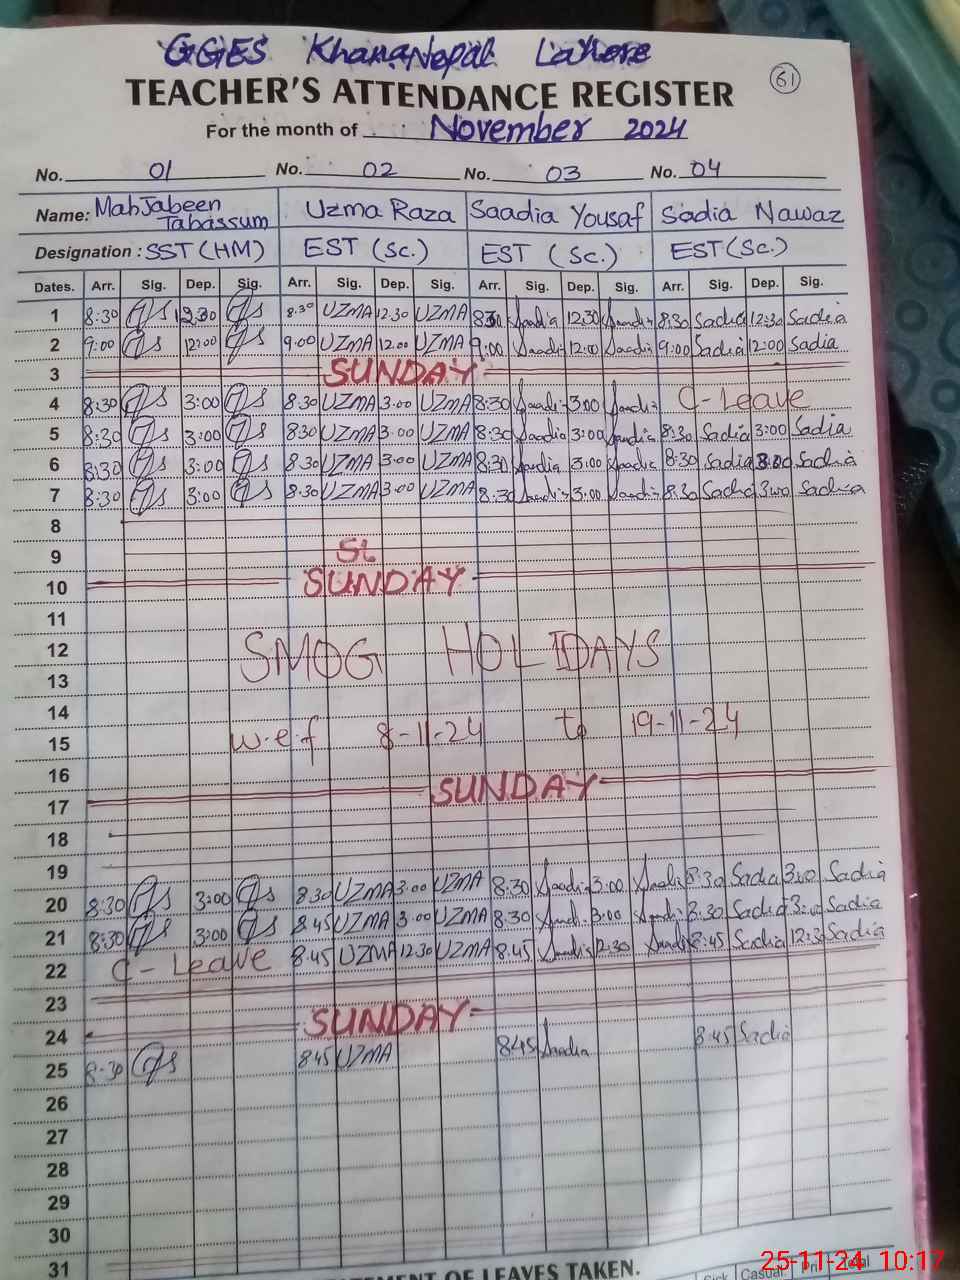 GGES KhanaNepal Lahore
TEACHER'S ATTENDANCE REGISTER
61
For the month of November 2024
No. 01 No. 02 No. 03 No. 04
Name: MahJabeen Tabassum Uzma Raza Saadia Yousaf Sadia Nawaz
Designation: SST (HM) EST (Sc.) EST (Sc.) EST (Sc.)
Dates. Arr. Sig. Dep. Sig. Arr. Sig. Dep. Sig. Arr. Sig. Dep. Sig. Arr. Sig. Dep. Sig.
1 8:30 12:30 8:30 UZMA 12.30 UZMA 8:30 Saadia 12:30 Saadia 8:30 Sadia 12:30 Sadia
2 9:00 12:00 9:00 UZMA 12.00 UZMA 9:00 Saadia 12:00 Saadia 9:00 Sadia 12:00 Sadia
3 SUNDAY
4 8:30 3:00 8:30 UZMA 3.00 UZMA 8:30 Saadia 3:00 Saadia C-Leave
5 8:30 3:00 8:30 UZMA 3.00 UZMA 8:30 Saadia 3:00 Saadia 8:30 Sadia 3:00 Sadia
6 8:30 3:00 8:30 UZMA 3.00 UZMA 8:30 Saadia 3:00 Saadia 8:30 Sadia 3:00 Sadia
7 8:30 3:00 8:30 UZMA 3.00 UZMA 8:30 Saadia 3:00 Saadia 8:30 Sadia 3:00 Sadia
8
9
10 SUNDAY
11
12 SMOG HOLIDAYS
13
14
15 w.e.f 8-11-24 to 19-11-24
16
17 SUNDAY
18
19
20 8:30 3:00 8:30 UZMA 3.00 UZMA 8:30 Saadia 3:00 Saadia 8:30 Sadia 3:00 Sadia
21 8:30 3:00 8:45 UZMA 3.00 UZMA 8:30 Saadia 3:00 Saadia 8:30 Sadia 3:00 Sadia
22 C-Leave 8:45 UZMA 12:30 UZMA 8:45 Saadia 12:30 Saadia 8:45 Sadia 12:30 Sadia
23
24 SUNDAY
25 8:30 8:45 UZMA 8:45 Saadia 8:45 Sadia
26
27
28
29
30
31
OF LEAVES TAKEN.
Sick Casual Pri Total
25-11-24 10:17